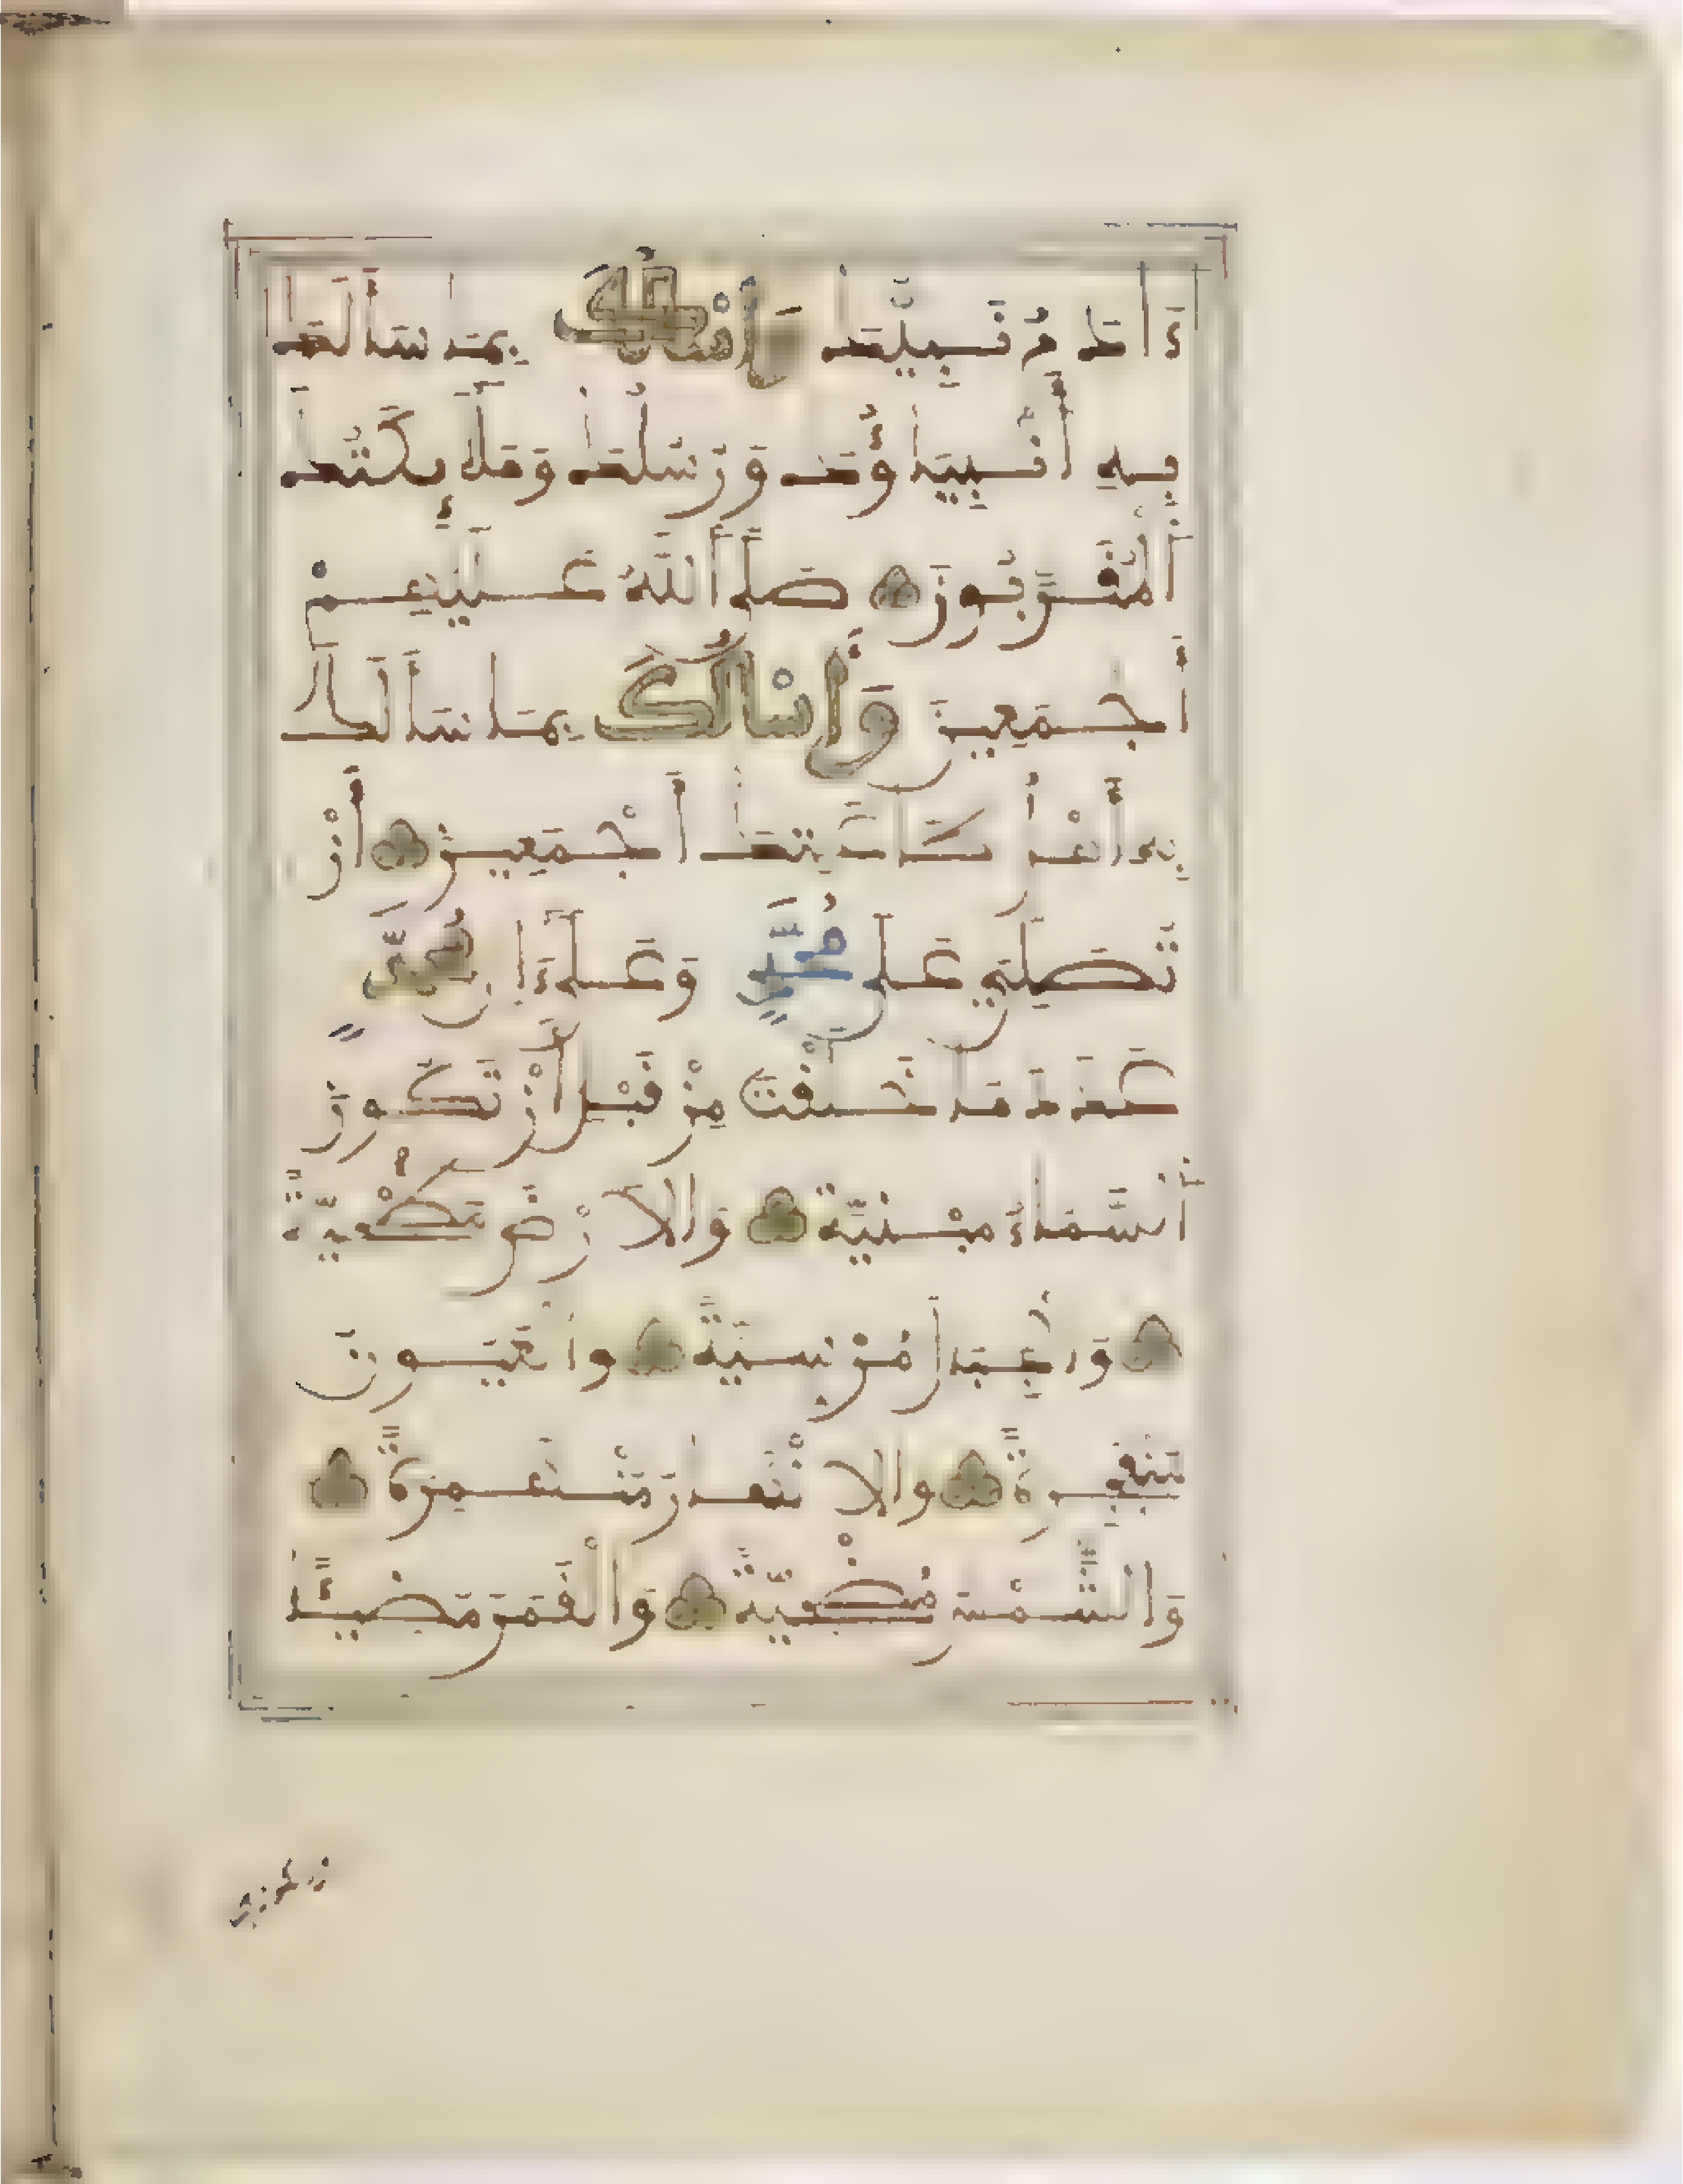 ءَادَمُ نَبِيُّكَ وَأَسْأَلُكَ بِمَا سَأَلَكَ
بِهِ أَنْبِيَاؤُكَ وَرُسُلُكَ وَمَلَائِكَتُكَ
الْمُقَرَّبُونَ صَلَّى اللَّهُ عَلَيْهِمْ
أَجْمَعِينَ وَأَسْأَلُكَ بِمَا سَأَلَكَ
بِهِ أَهْلُ طَاعَتِكَ أَجْمَعِينَ أَنْ
تُصَلِّيَ عَلَى مُحَمَّدٍ وَعَلَى ءَالِ مُحَمَّدٍ
عَدَدَ مَا خَلَقْتَ مِنْ قَبْلِ أَنْ تَكُونَ
السَّمَاءُ مَبْنِيَّةً وَالْأَرْضُ مَدْحِيَّةً
وَالْجِبَالُ مُرْسِيَةً وَالْعُيُونُ
مُنْفَجِرَةً وَالْأَنْهَارُ مُنْهَمِرَةً
وَالشَّمْسُ مُضْحِيَةً وَالْقَمَرُ مُضِيئًا